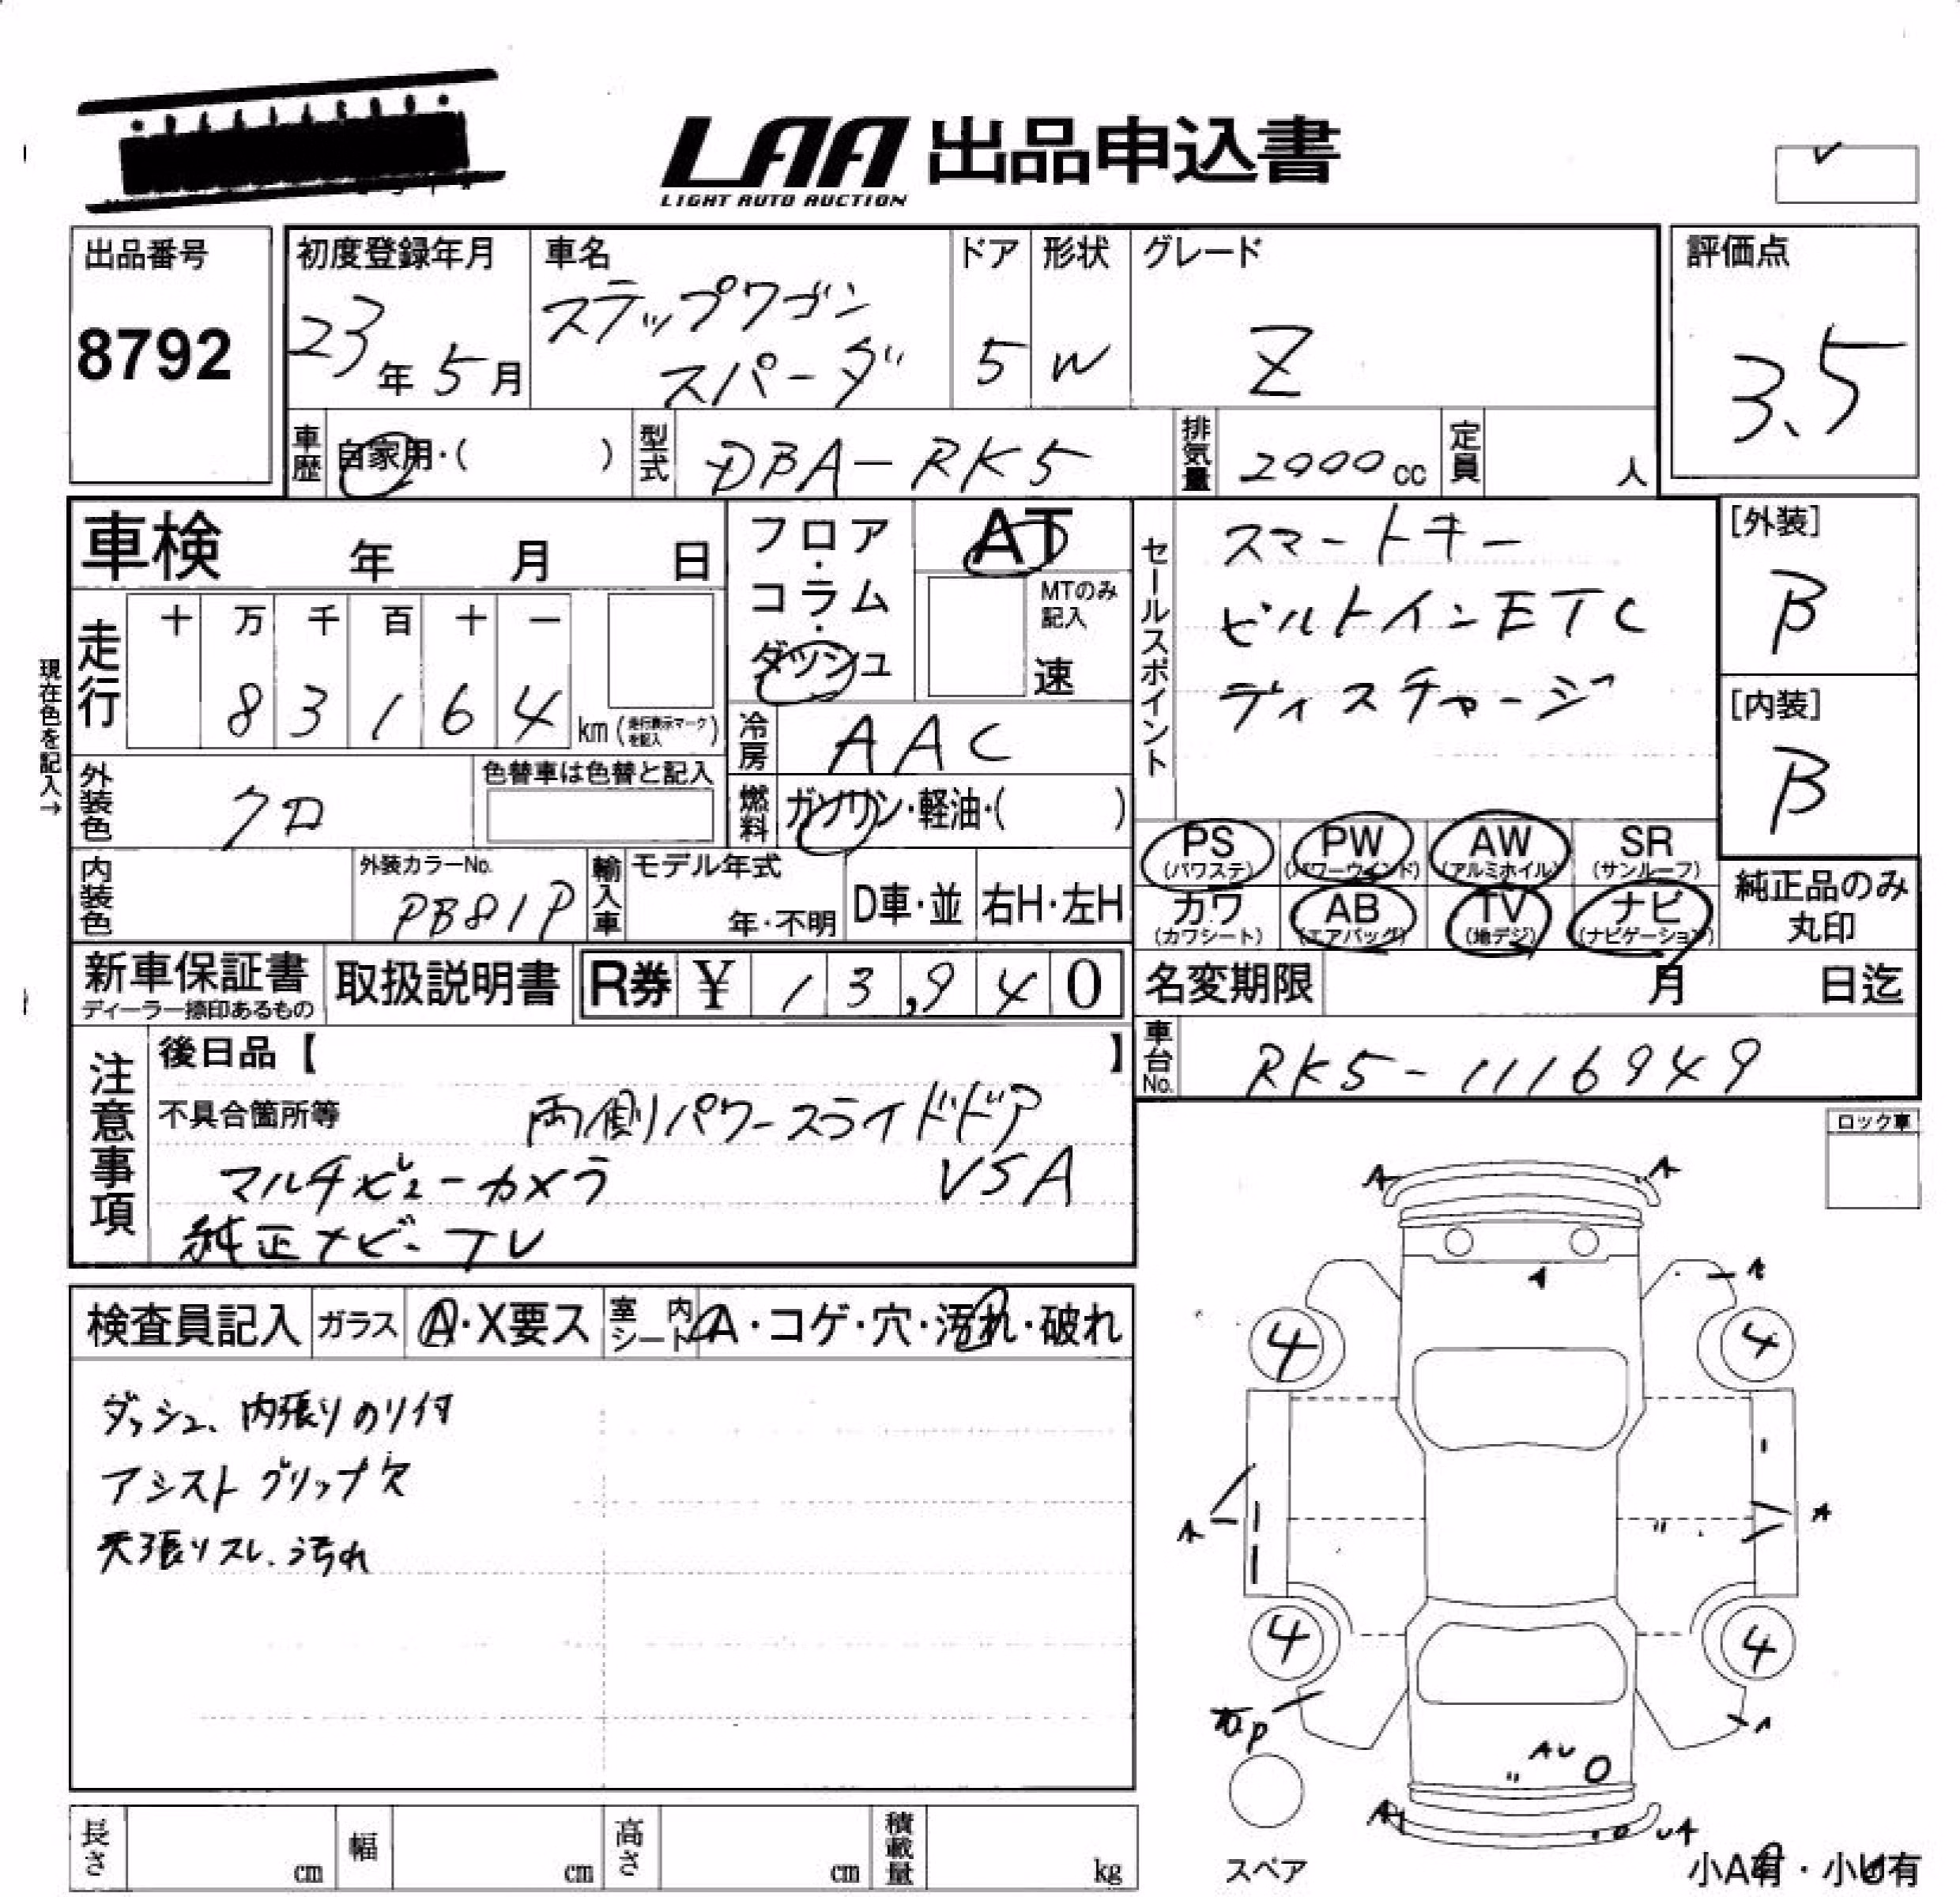 LAA 出品申込書
LIGHT AUTO AUCTION
出品番号
8792
初度登録年月
23年5月
車名
ステップワゴン
スパーダ
ドア
5
形状
W
グレード
Z
評価点
3.5
車歴
自家用・( )
型式
DBA-RK5
排気量
2000cc
定員
人
車検 年 月 日
フロア・コラム・ダッシュ
AT
MTのみ記入
速
現在色を記入→
走行
十 万 千 百 十 一
8 3 1 6 4 km(走行表示マークを記入)
冷房
AAC
外装色
クロ
色替車は色替と記入
燃料
ガソリン・軽油・( )
内装色
外装カラーNo.
PB81P
輸入車
モデル年式
年・不明
D車・並
右H・左H
セールスポイント
スマートキー
ビルトインETC
ディスチャージ
[外装]
B
[内装]
B
PS (パワステ)
PW (パワーウインド)
AW (アルミホイル)
SR (サンルーフ)
カワ (カワシート)
AB (エアバッグ)
TV (地デジ)
ナビ (ナビゲーション)
純正品のみ丸印
新車保証書
ディーラー捺印あるもの
取扱説明書
R券 ¥ 13,940
名変期限 月 日迄
車台No.
RK5-1116949
注意事項
後日品【 】
不具合箇所等 両側パワースライドドア
マルチビューカメラ VSA
純正ナビ・TV
ロック車
検査員記入
ガラス
A・X要ス
室内シート
A・コゲ・穴・汚れ・破れ
ダッシュ、内張りのり付
アシストグリップ欠
天張りスレ、汚れ
A A
A A
4 4
A A
4 4
P A
AU
UA
スペア
小A有・小U有
長さ cm
幅 cm
高さ cm
積載量 kg